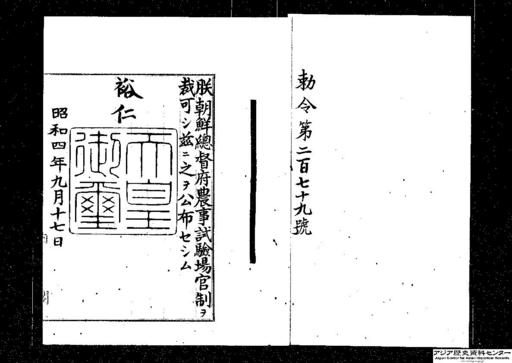 勅令第二百七十九號
朕朝鮮總督府農事試驗場官制ヲ
裁可シ茲ニ之ヲ公布セシム
裕仁
天皇
御璽
昭和四年九月十七日
内閣
アジア歴史資料センター
Japan Center for Asian Historical Records